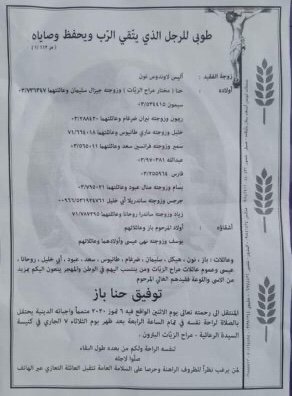 طوبى للرجل الذي يتّقي الرّب ويحفظ وصاياه
زوجة الفقيد : أليس لاوندوس نون
أولاده : حنا (مختار مراح الزيّات) وزوجته جيزال سليمان وعائلتهما ٠٣/٧٣٦٣٤٧
سيمون ٠٣/٥٣٤٤١٥
ريمون وزوجته نيران ضرغام وعائلتهما ٠٣/٢٨٨٤٢٠
خليل وزوجته ماري طانيوس وعائلتهما ٧١/٦٦٤٠١٨
سمير وزوجته فرانسين سعد وعائلتهما ٠٣/٥٦٥٠١١
عبدالله ٠٣/٩٧٠٣٨١
فارس
بسام وزوجته منال عبود وعائلتهما ٠٣/٧٩٥٠٢١
جرجس وزوجته ساندريلا أبي خليل
زياد وزوجته ساندرا روحانا وعائلتهما ٧١/٧٨٧٢٩٥
أشقاؤه : أولاد المرحوم باز وعائلاتهم
يوسف وزوجته نهى عيسى وأولادهما وعائلاتهم
وعائلات : باز ، نون ، هيكل ، سليمان ، ضرغام ، طانيوس ، سعد ، عبود ، أبي خليل ، روحانا ،
عيسى وعموم عائلات مراح الزيات ومن ينتسب اليهم في الوطن والمهجر ينعون اليكم بمزيد
من الاسى واللوعة فقيدهم الغالي المرحوم
توفيق حنا باز
المنتقل الى رحمته تعالى يوم الاثنين الواقع فيه ٦ تموز ٢٠٢٠ متمماً واجباته الدينية يحتفل
بالصلاة لراحة نفسه في تمام الساعة الرابعة بعد ظهر يوم الثلاثاء ٧ الجاري في كنيسة
السيدة الرعائية - مراح الزيات البترون .
لنفسه الراحة ولكم من بعده طول البقاء
صلّوا لأجله
لمن يرغب نظراً للظروف الراهنة وحرصا على السلامة العامة تتقبل العائلة التعازي عبر الهاتف